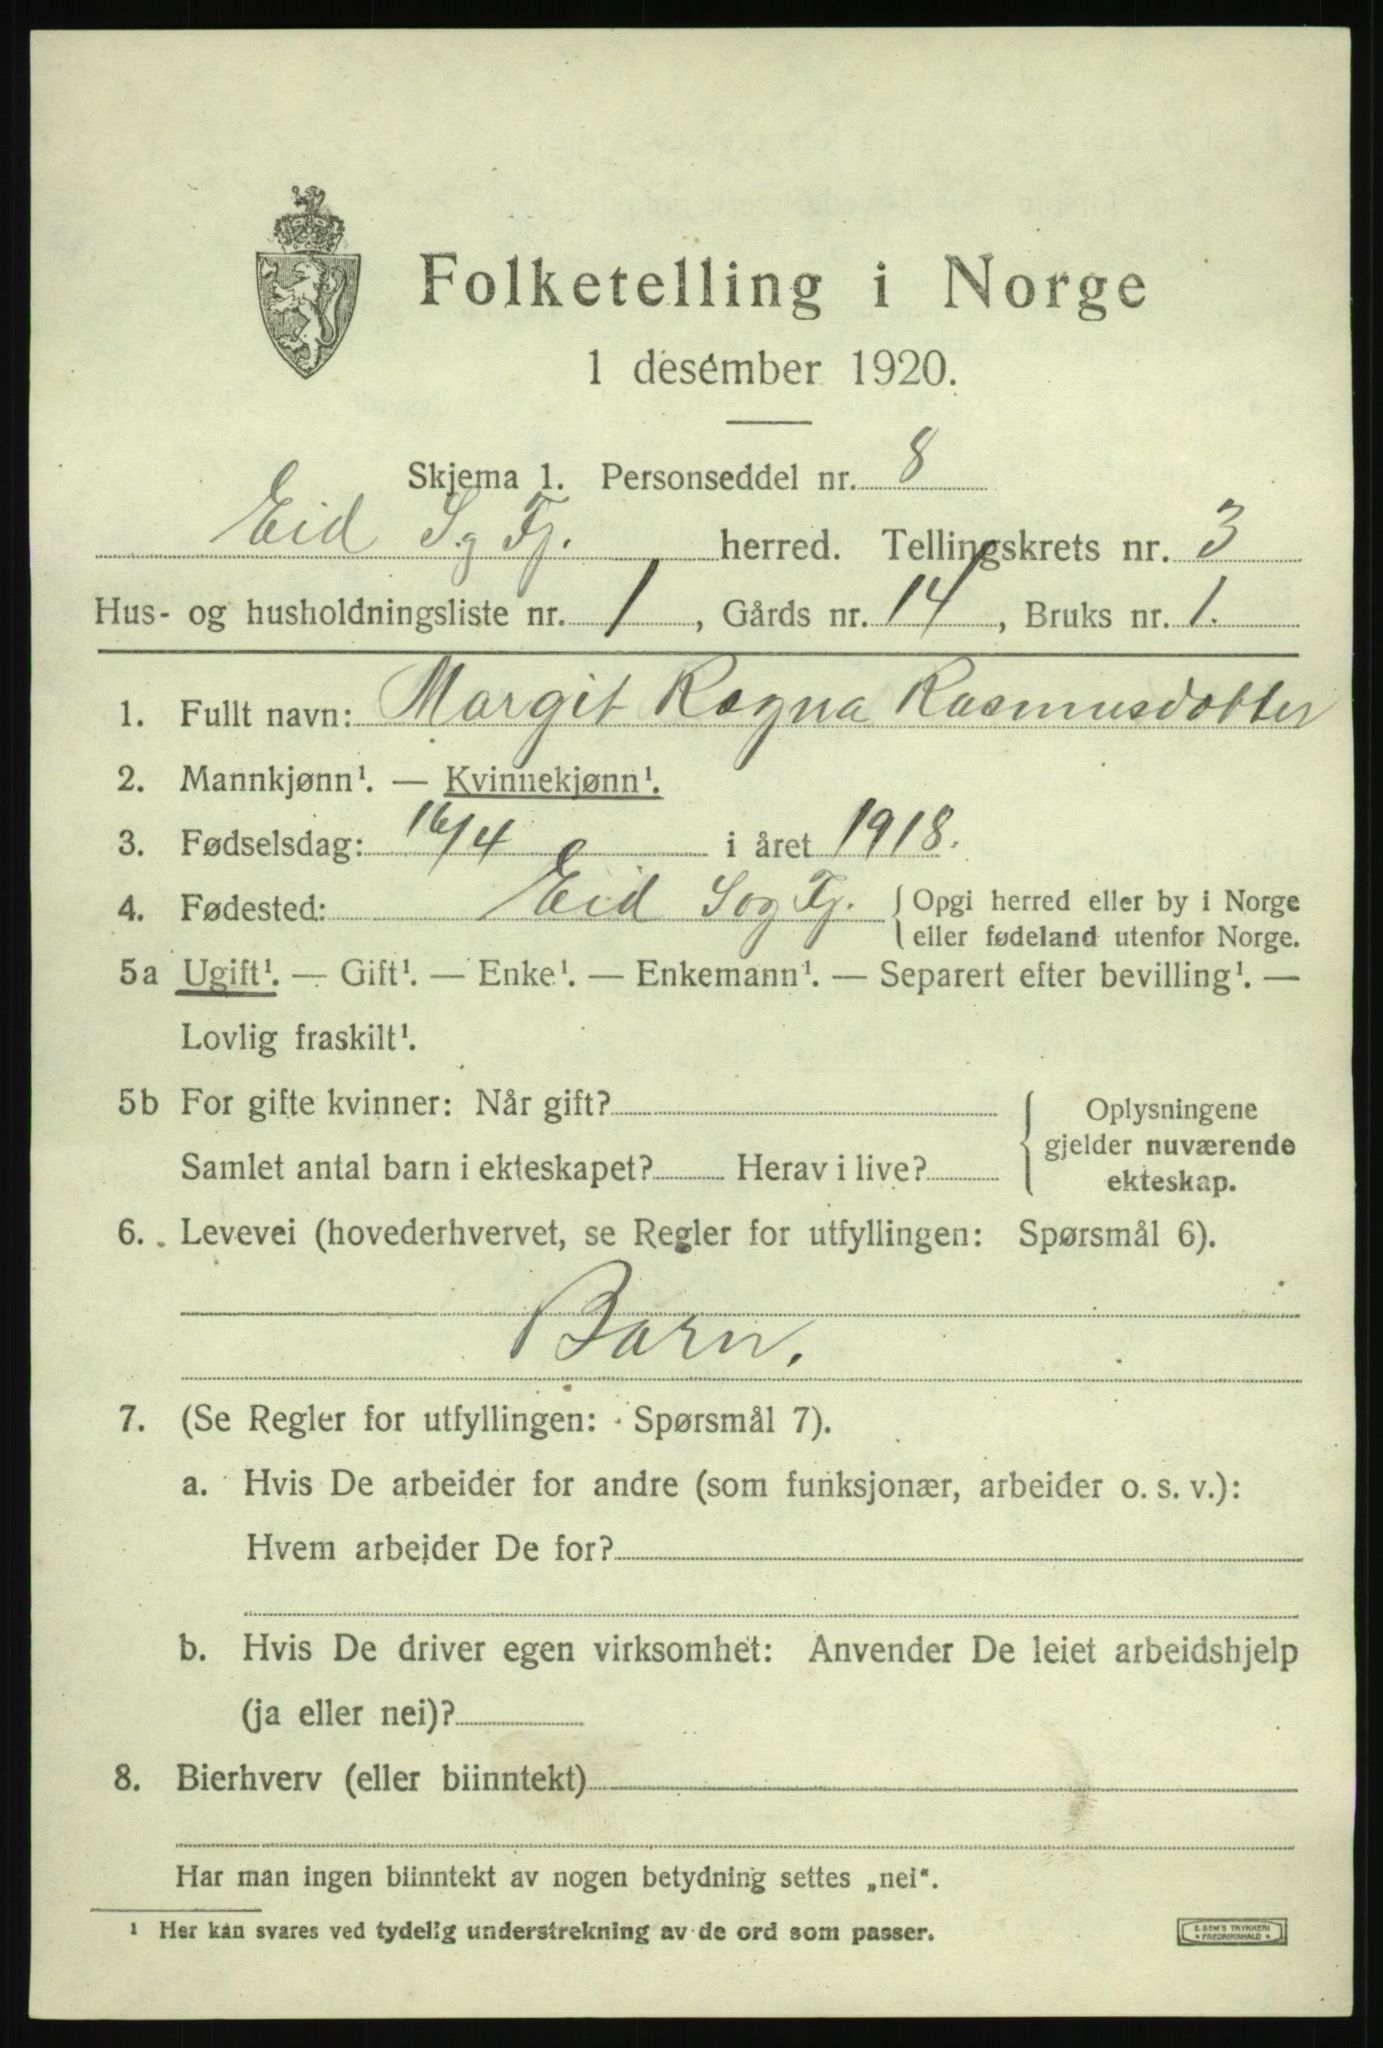 Folketelling i Norge
1 desember 1920.
Skjema 1. Personseddel nr. 8
Eid S.g Fj. herred. Tellingskrets nr. 3
Hus- og husholdningsliste nr. 1, Gårds nr. 14, Bruks nr. 1.
1. Fullt navn: Margit Ragna Rasmusdotter
2. Mannkjønn¹. — Kvinnekjønn¹.
3. Fødselsdag: 16/4 i året 1918.
4. Fødested: Eid Sog Fj. { Opgi herred eller by i Norge
eller fødeland utenfor Norge.
5a Ugift¹. — Gift¹. — Enke¹. — Enkemann¹. — Separert efter bevilling¹. —
Lovlig fraskilt¹.
5b For gifte kvinner: Når gift? { Oplysningene
gjelder nuværende
Samlet antal barn i ekteskapet? Herav i live? ekteskap.
6. Levevei (hovederhvervet, se Regler for utfyllingen: Spørsmål 6).
Barn.
7. (Se Regler for utfyllingen: Spørsmål 7).
a. Hvis De arbeider for andre (som funksjonær, arbeider o. s. v.):
Hvem arbeider De for?
b. Hvis De driver egen virksomhet: Anvender De leiet arbeidshjelp
(ja eller nei)?
8. Bierhverv (eller biinntekt)
Har man ingen biinntekt av nogen betydning settes „nei“.
¹ Her kan svares ved tydelig understrekning av de ord som passer.
E. SEM'S TRYKKERI
* FREDRIKSHALD *